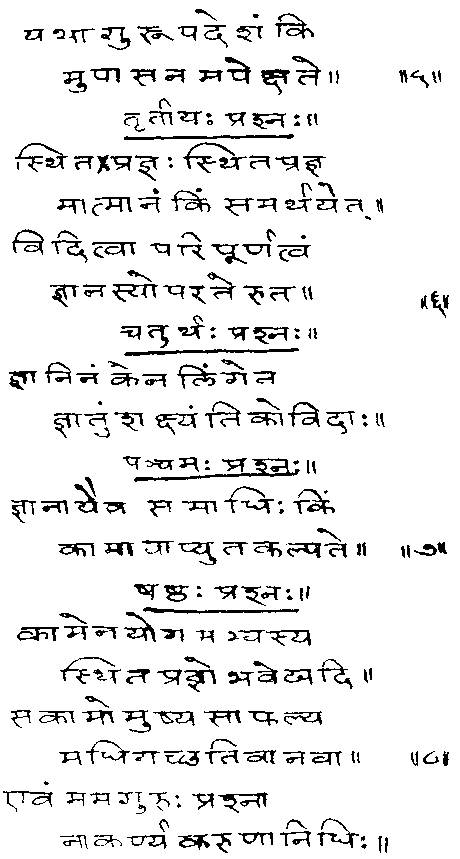 यथागुरूपदेशं कि
मुपासनमपेक्षते॥ ॥५॥
तृतीयः प्रश्नः॥
स्थितप्रज्ञः स्थितप्रज्ञ
मात्मानं किं समर्थयेत्॥
विदित्वा परिपूर्णत्वं
ज्ञानस्योपरतेरुत॥ ॥६॥
चतुर्थः प्रश्नः॥
ज्ञानिनं केन लिंगेन
ज्ञातुं शक्ष्यंति कोविदाः॥
पञ्चमः प्रश्नः॥
ज्ञानायैव समाधिः किं
कामायाप्युत कल्पते॥ ॥७॥
षष्ठः प्रश्नः॥
कामेन योगमभ्यस्य
स्थितप्रज्ञो भवेद्यदि॥
सकामोमुष्य साफल्य
मधिगच्छति वा न वा॥ ॥८॥
एवं मम गुरुः प्रश्ना
नाकर्ण्य करुणानिधिः॥